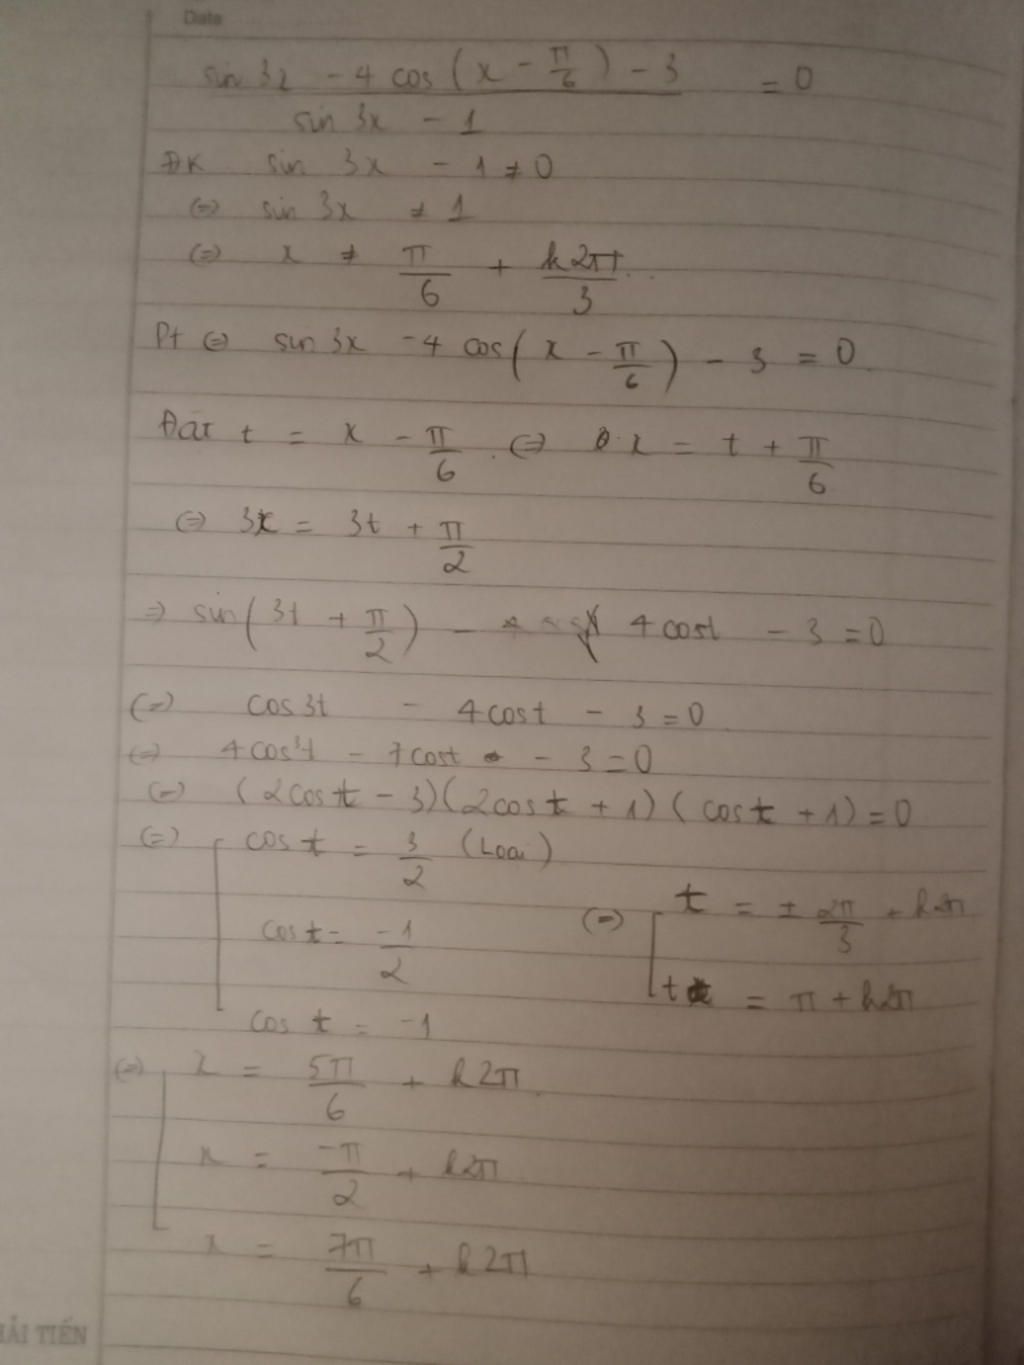 Date
sin 3x - 4 cos (x - π/6) - 3 = 0
sin 3x - 1
ĐK sin 3x - 1 ≠ 0
(=) sin 3x ≠ 1
(=) x ≠ π/6 + k2π/3
Pt (=) sin 3x - 4 cos(x - π/6) - 3 = 0
Đặt t = x - π/6 . (=) x = t + π/6
(=) 3x = 3t + π/2
=> sin(3t + π/2) - 4 cost - 3 = 0
(=) cos 3t - 4 cost - 3 = 0
(=) 4 cos³t - 7 cost - 3 = 0
(=) (2 cos t - 3)(2 cos t + 1)(cos t + 1) = 0
(=) cos t = 3/2 (Loại)
cos t = -1/2
cos t = -1
(=) t = ± 2π/3 + k2π
t = π + k2π
(=) x = 5π/6 + k2π
x = -π/2 + k2π
x = 7π/6 + k2π
HẢI TIẾN